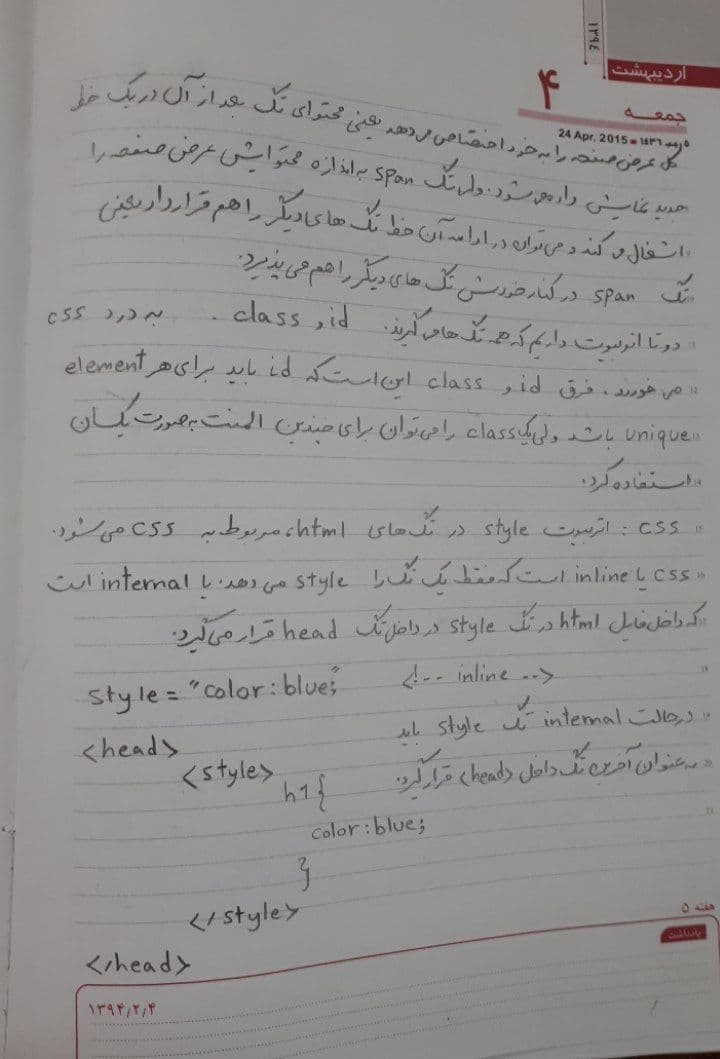 ۱۳۹٤
اردیبهشت
۴
جمعه
24 Apr. 2015 = ۱٤۳٦
کل عرض صفحه را به خود اختصاص می دهد یعنی محتوای تگ بعد از آن در یک خط
جدید نمایش داده می شود. ولی تگ span به اندازه محتوایش عرض صفحه را
اشغال می کند و می توان در ادامه آن خط تگ های دیگر را هم قرار داد یعنی
تگ span در کنار خودش تگ های دیگر را هم می پذیرد.
دو تا اتریبیوت داریم که همه تگ ها می گیرند. id و class . به درد css
می خورند. فرق id و class این است که id باید برای هر element
unique باشد ولی یک class را می توان برای چندین المنت به صورت یکسان
استفاده کرد.
css : اتریبیوت style در تگ های html، مربوط به css می شود.
css یا inline است که فقط یک تگ را style می دهد. یا internal است
که داخل فایل html در تگ style در داخل تگ head قرار می گیرد.
style = "color:blue;" <!-- inline -->
در حالت internal تگ style باید
<head>
به عنوان آخرین تگ داخل <head> قرار گیرد.
<style>
h1{
color:blue;
}
</style>
</head>
هفته ۵
یادداشت
۱۳۹۴/۲/۴